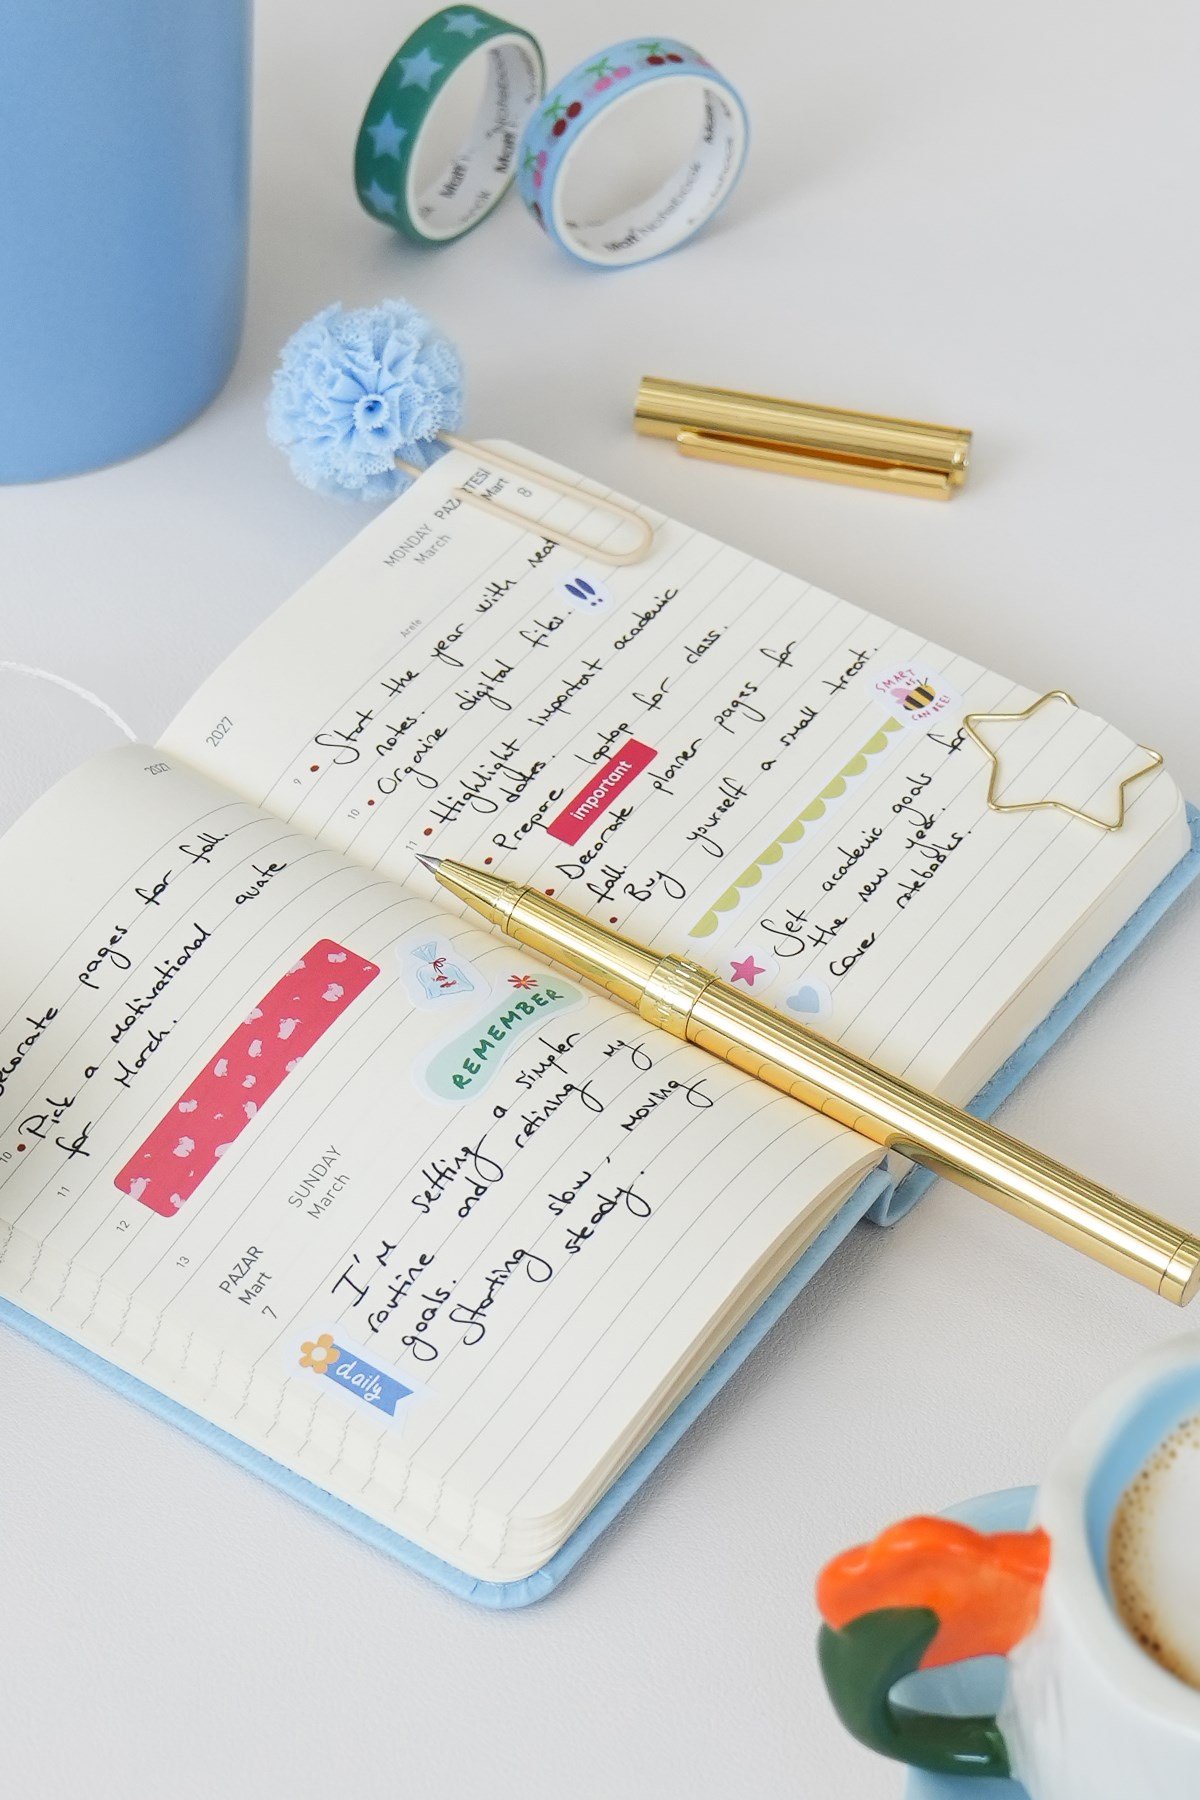 2027
ecorate pages for fall.
10 • Pick a motivational quate
for March.
11
12
13
SUNDAY
March
PAZAR
Mart
7
REMEMBER
I'm setting a simpler
routine and refining my
goals.
Starting slow, moving
steady.
daily
2027
MONDAY
March
PAZARTESİ
Mart
8
Arefe
9 • Start the year with neat
notes.
10 • Organize digital files.
11 • Highlight important academic
dates.
• Prepare laptop for class.
important
• Decorate planner pages for
fall.
• Buy yourself a small treat.
SMART
AS
CAN BEE!
Set academic goals for
the new year.
cover notebooks.
Matt Notebook
Matt Notebook